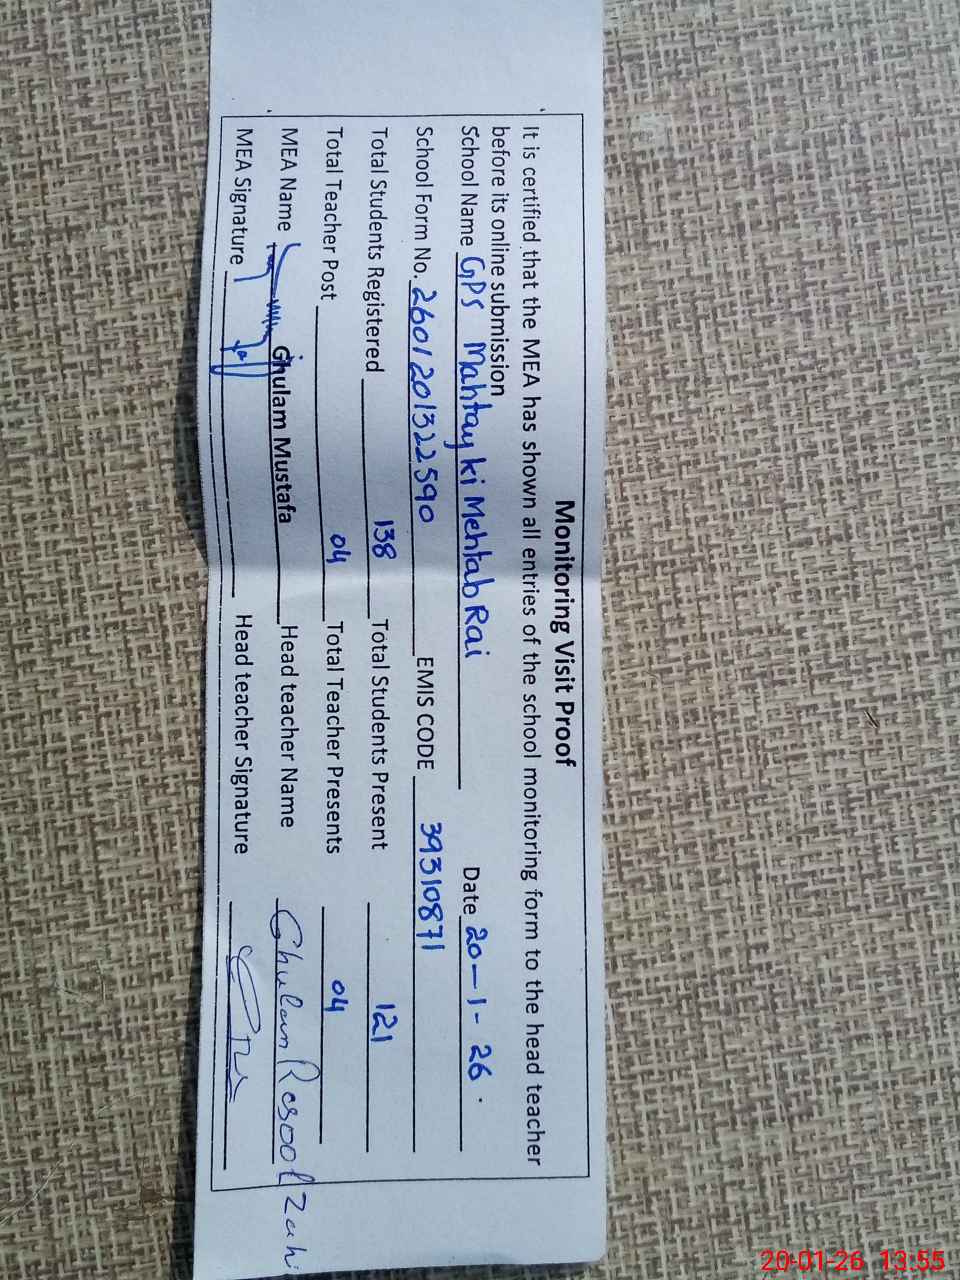 Monitoring Visit Proof
It is certified that the MEA has shown all entries of the school monitoring form to the head teacher
before its online submission
School Name GPS Mahtay ki Mehtab Rai Date 20-1-26.
School Form No. 2601201322590 EMIS CODE 39310871
Total Students Registered 138 Total Students Present 121
Total Teacher Post 04 Total Teacher Presents 04
MEA Name Ghulam Mustafa Head teacher Name Ghulam Rasool
MEA Signature Head teacher Signature
20-01-26 13:55